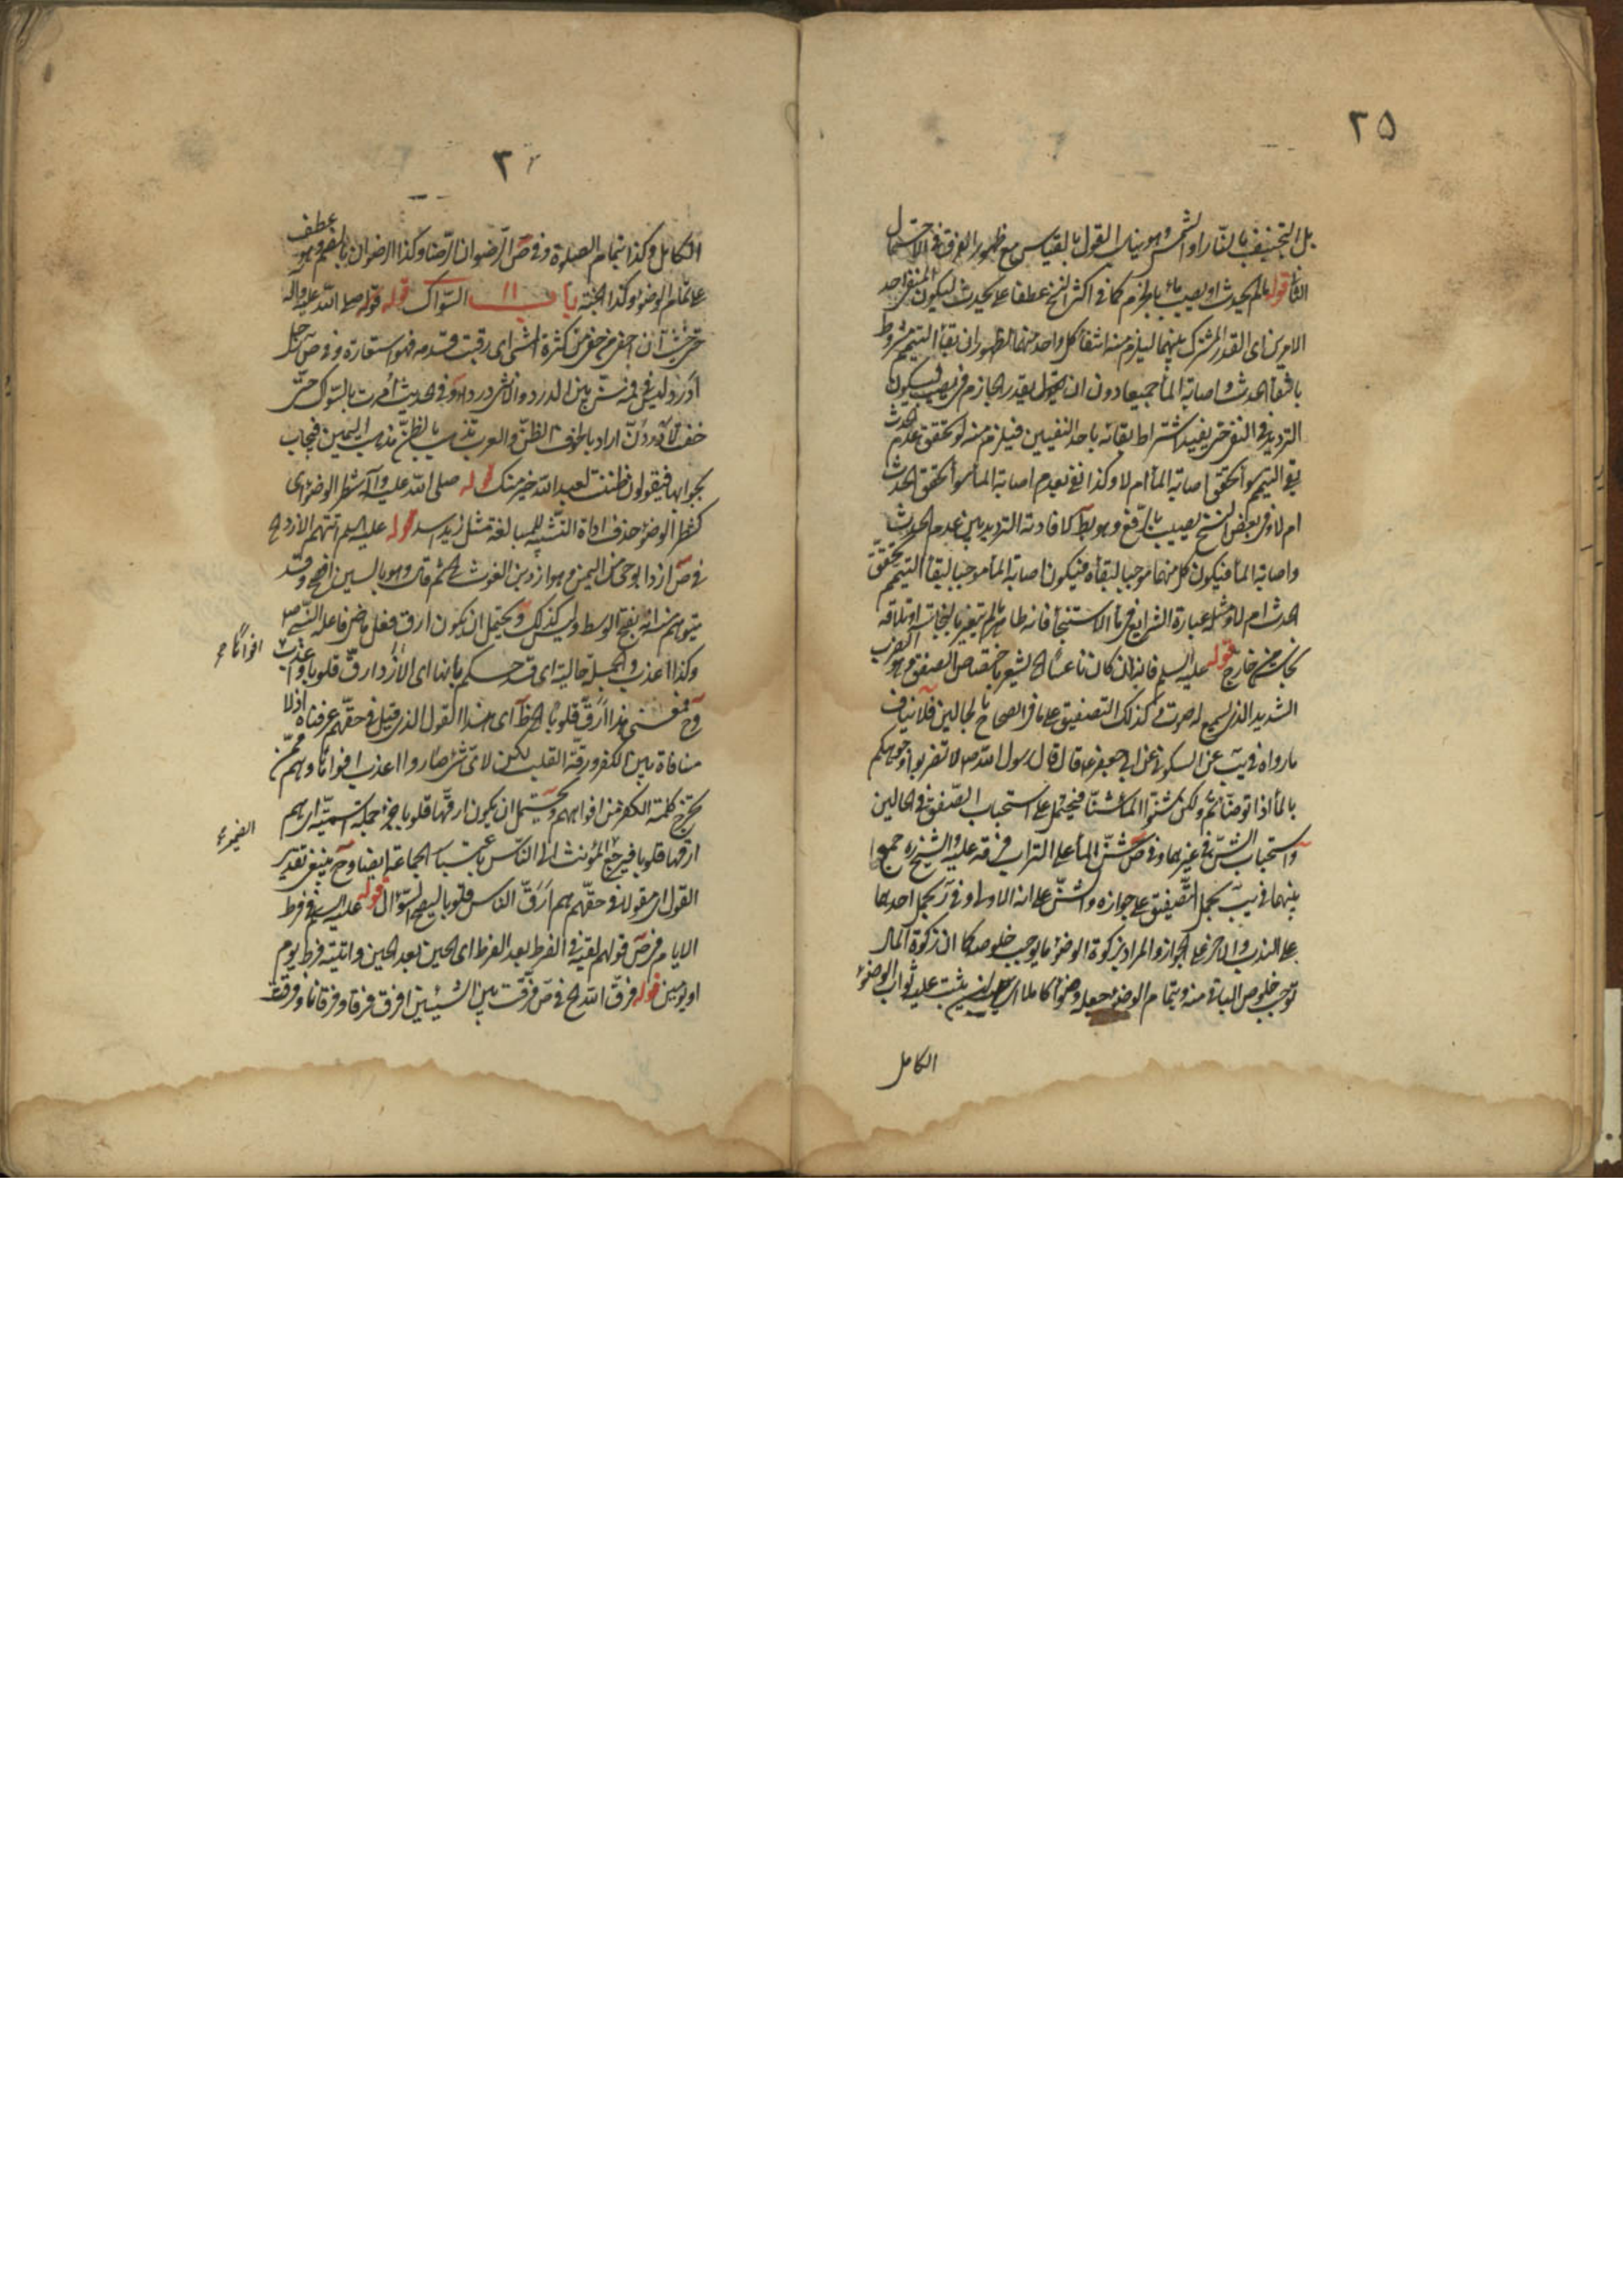 ٢٥
بل التجفيف بالنار او الشمس وهو يناسب القول بالقياس مع ظهور الفرق في الاحتمال
الثاني قوله ما لم يحدث او يصيب ماء بالجزم كما في اكثر النسخ عطفا على يحدث ليكون المنفي احد
الامرين اى القدر المشترك بينهما ليلزم منه انتفاء كل واحد منهما لظهور ان بقاء التيمم مشروط
بانتفاء الحدث واصابة الماء جميعا دون ان يقدر الجازم في يصيب ليكون
الترديد في النفي حتى يفيد اشتراط بقائه باحد النفيين فيلزم منه لو تحقق عدم الحدث
بقي التيمم سواء تحقق اصابة الماء ام لا وكذا في عدم اصابة الماء سواء تحقق الحدث
ام لا وفي بعض النسخ يصيب بالرفع وهو كلا فادته الترديد بين عدم الحدث
واصابة الماء فيكون كل منهما موجبا لبقائه فيكون اصابة الماء موجبا لبقاء التيمم تحقق
الحدث ام لا ومثل عبارة الشرايع في ماء الاستنجاء فانه طاهر ما لم يتغير بالنجاسة او تلاقه
نجاسة من خارج قوله عليه السلم فانه ان كان ناعسا الخ يشعر باختصاص الصفق وهو الضرب
الشديد الذي يسمع له صوت وكذلك التصفيق على ما في الصحاح بالحالين فلا ينافي
ما رواه في يب عن السكوني عن ابي جعفر ع قال قال رسول الله ص لا تضربوا وجوهكم
بالماء اذا توضأتم ولكن شنوا الماء شنا فيحمل على استحباب الصفق في الحالين
واستحباب الشن في غيرهما وفي ص شن الماء على التراب فرقه عليه والشيخ ره جمع
بينهما في يب بحمل التصفيق على جوازه والشن على انه الاولى وفي ر بحمل احدهما
على الندب والاخر على الجواز والمراد بزكوة الوضوء ما يوجب خلوصه كما ان زكوة المال
توجب خلوص الباقي منه وبتمام الوضوء جعله وضوءا كاملا اى يثبت عليه ثواب الوضوء
الكامل
٢
الكامل وكذا بتمام الصلوة وفي ص الرضوان الرضا وكذا الرضوان بالضم وهو عطف
على تمام الوضوء وكذا الجنة باب السواك قوله قوله صلى الله عليه واله
حتى خشيت ان احفي من كثرة المشى اى رقت قدمه فهو استعارة وفي ص رجل
ادرد ليس في فمه سن بين الدرد والانثى درداء وفي الحديث امرت بالسواك حتى
خفت لادردن اراد بالخوف الظن والعرب تذهب بالظن مذهب اليمين فيجاب
بجوابها فيقولون ظننت لعبد الله خير منك قوله صلى الله عليه واله شطر الوضوء اى
كشطر الوضوء حذف اداة التشبيه للمبالغة مثل زيد اسد قوله عليه السلم اتتهم الازد الخ
في ص ازد ابو حي من اليمن وهو ازد بن الغوث الخ ثم قال وهو بالسين افصح وقد
يتوهم من انه بفتح الوسط وليس كذلك ويحتمل ان يكون ارق فعل ماض فاعله النبي ص
وكذا اعذب والجملة حالية اى قد حسكم بانها اى الازد ارق قلوبا واعذب
افواها صح
وح فمعنى هذا ارق قلوبا الخ اى هذا القول الذي قيل في حقهم عرفناه اذ لا
منافاة بين الكفر ورقة القلب لكن لاى شئ صاروا اعذب افواها وهم ممن
يخرج كلمة الكفر من افواههم ويحتمل ان يكون ارقها قلوبا خبر جملة اسمية اى هم
ارقها قلوبا فيرجع المؤنث الى الناس باعتبار الجماعة ايضا وح ينبغي تقدير
القول اى مقول في حقهم هم ارق الناس قلوبا ليصح السؤال قوله عليه السلم في فرط
الايام في ص قولهم لقيته في الفرط بعد الفرط اى الحين بعد الحين واتيته فرط يوم
او يومين قوله فرق الله الخ في ص فرقت بين الشيئين افرق فرقا وفرقانا وفرقت